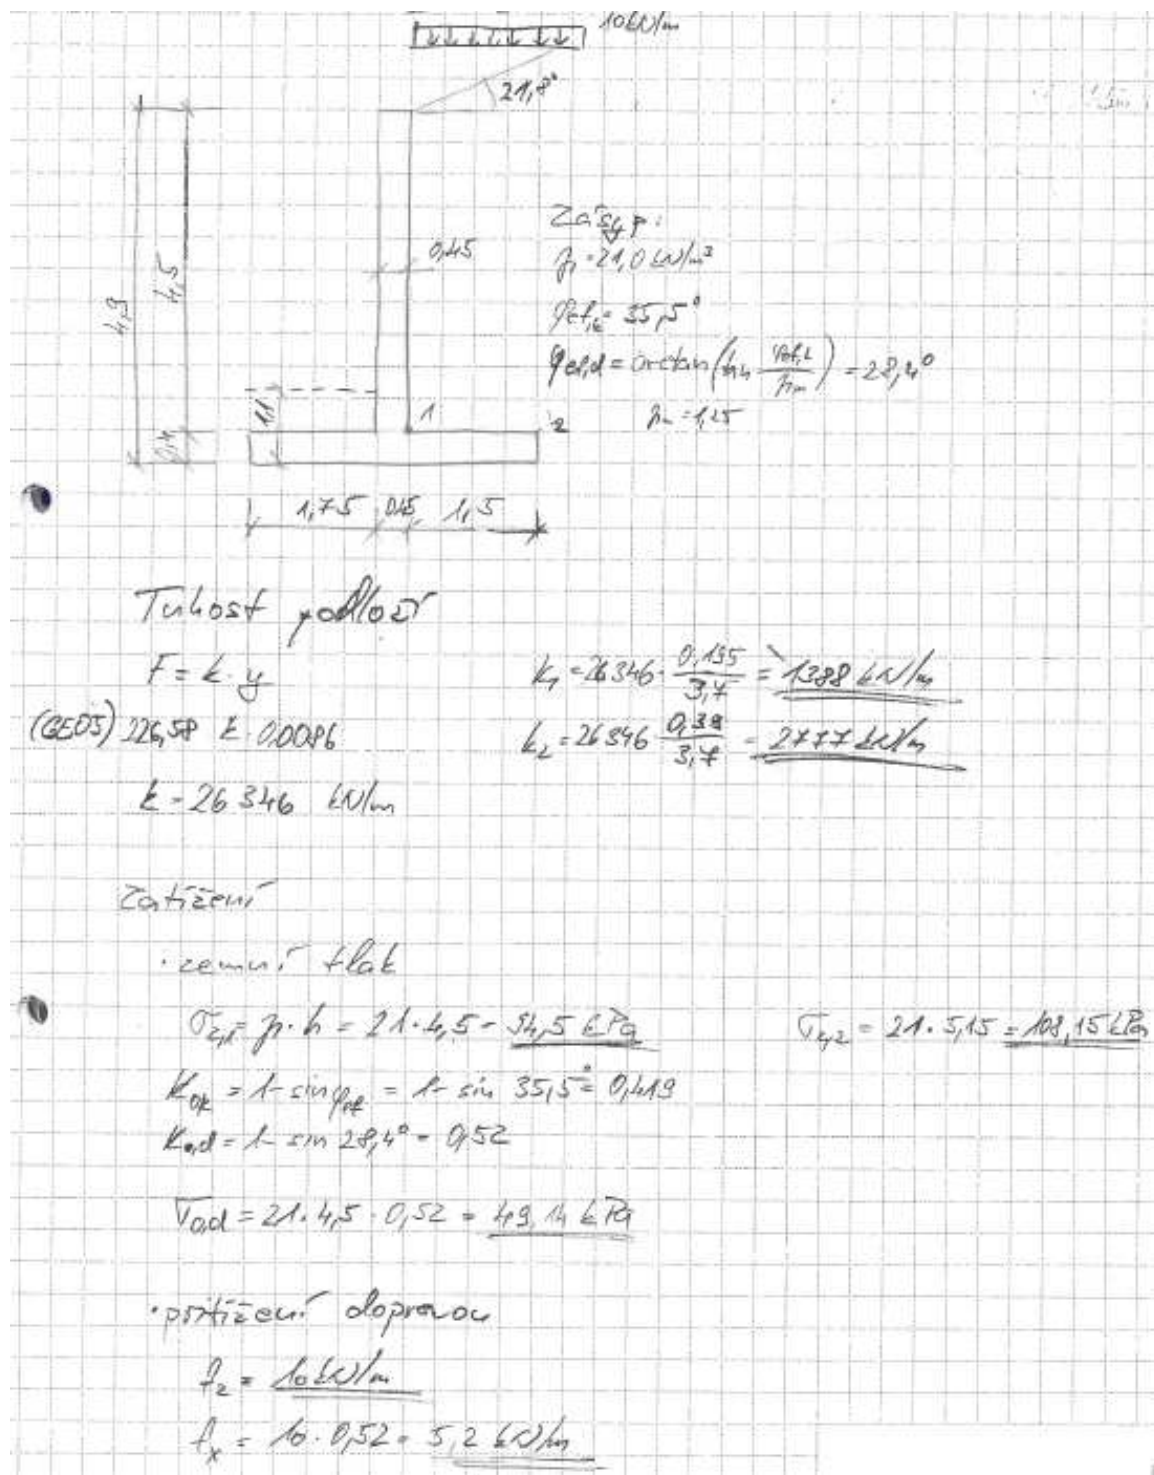 10 kN/m
21,8°
4,9
4,5
0,4
1,1
0,45
1
2
1,75 0,45 1,5
Zásyp:
γ = 21,0 kN/m³
φef,k = 35,5°
φef,d = arctan(tan φef,k/γm) = 28,4°
γm = 1,25
Tuhost podloží
F = k · y
(GEO5) 226,58 k · 0,0086
k = 26 346 kN/m
k₁ = 26 346 · 0,195/3,7 = 1388 kN/m
k₂ = 26 346 · 0,39/3,7 = 2777 kN/m
Zatížení
· zemní tlak
σz,1 = γ · h = 21 · 4,5 = 94,5 kPa
σz,2 = 21 · 5,15 = 108,15 kPa
K0k = 1 - sin φef = 1 - sin 35,5° = 0,419
K0,d = 1 - sin 28,4° = 0,52
σ0,d = 21 · 4,5 · 0,52 = 49,14 kPa
· přitížení dopravou
fz = 10 kN/m
fx = 10 · 0,52 = 5,2 kN/m